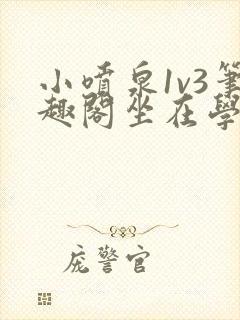 小噴泉1v3筆
趣閣坐在學
庞警官